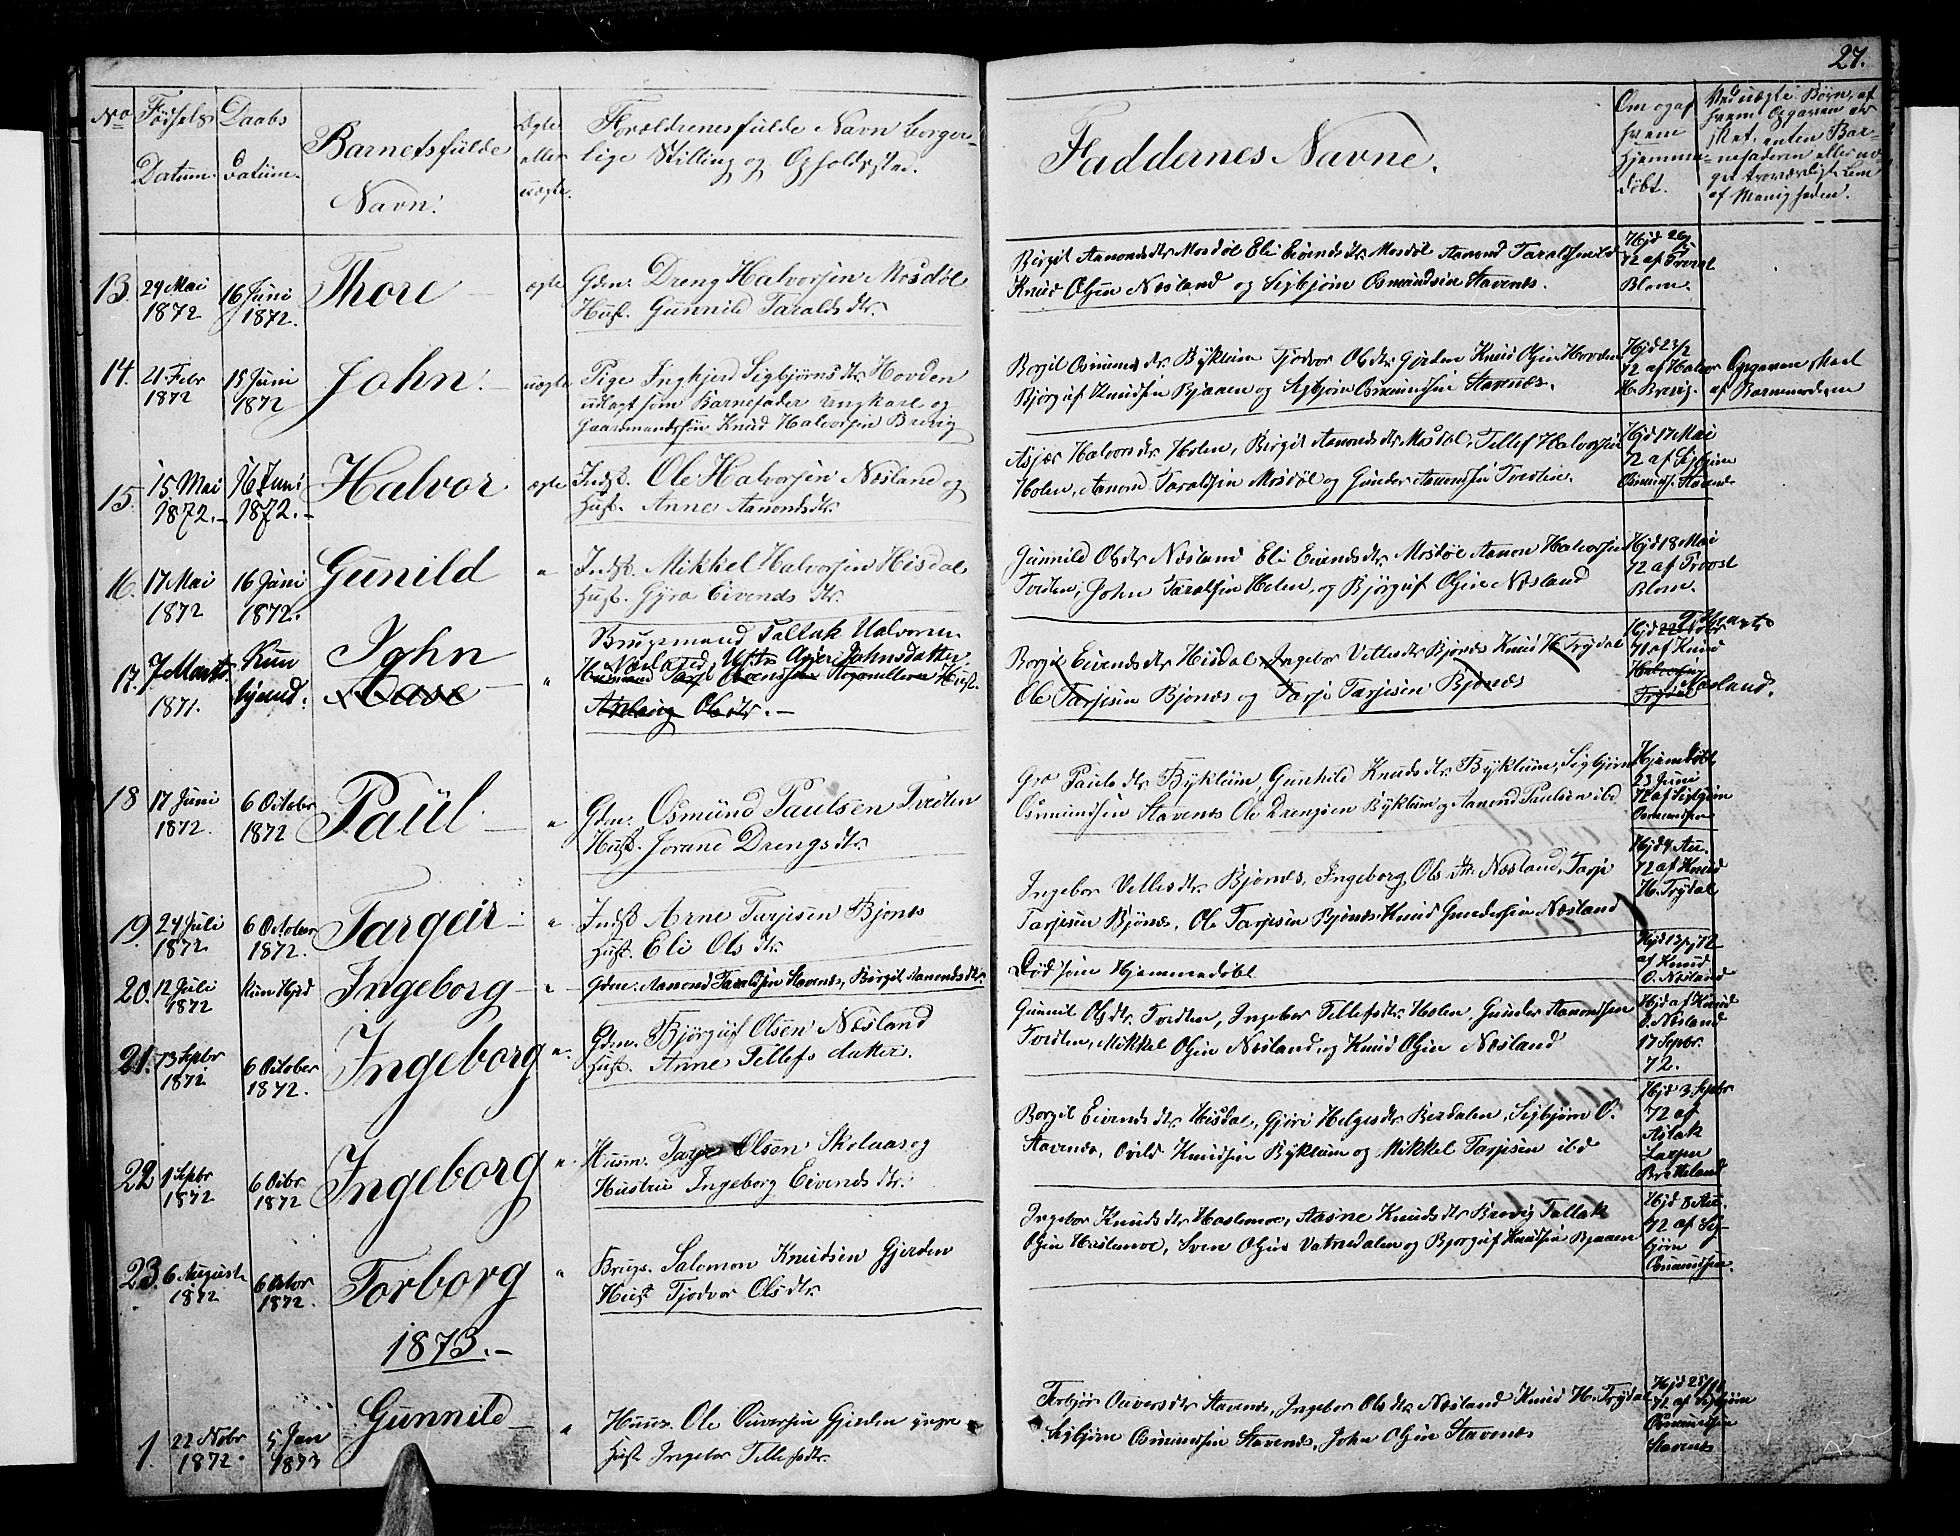 27.
No Fødsels Datum. Daabs Datum. Barnets fulde Navn. Ægte eller uægte. Forældrenes fulde Navn borger-
lige Stilling og Opholdssted.
Faddernes Navne.
Om og af hvem Hjemme døbt.
Ved uægte Børn, af
hvem Opgaven er
sket, enten Bar-
nefaderen eller no-
get troværdigt Lem
af Menigheden.
13. 29 Mai 1872 16 Juni 1872. Thore ægte Gdm. Dreng Halvorsen Mosdøl
Hust. Gunnild Taraldsdtr.
Birgit Aanondsdtr. Mosdøl Eli Eivendsdtr. Mosdøl Aanond Taraldsen ibd
Knud Olsen Næsland og Sigbjørn Osmundsen Stavenes.
72 af Trovat
Blom.
14. 21 Febr 1872 15 Juni 1872 John. uægte Pige Ingkjerd Sigbjørnsdtr. Hovden
udlagt som Barnefader Ungkarl og
Gaardmandssøn Knud Halvorsen Breivig
Borgil Osmundsdtr. Bykleim Tjodvor Olsdtr. Gjerden Knud Olsen Hovden
Bjørguf Knudsen Bjaaen og Sigbjørn Osmundsen Stavnæs.
Hjd 23/2
72 af Halvor
H. Breivig.
Opgaven skeet
af Barnemoderen
15. 15 Mai 1872. 16 Juni 1872. Halvor ægte Indst. Ole Halvorsen Næsland og
Hust. Anne Aanondsdtr.
Asjær Halvorsdtr. Holen, Birgit Aanondsdtr. Mosdøl, Tellef Halvorsen
Holen, Aanond Taraldsen Mosdøl og Gunder Aanondsen Tveiten.
Hjd 17 Mai
72 af Sigbjørn
Osmunds. Stavnes
16. 17 Mai 1872 16 Juni 1872. Gunild " Indst. Mikkel Halvorsen Hisdal
Hust. Gyro Eivends dtr.
Gunnild Olsdtr Næsland Eli Eivendsdtr. Mosdøl Aanon Halvorsen
Tveiten, John Taraldsen Holen, og Bjørguf Olsen Næsland
Hjd 18 Mai
72 af Trovat
Blom.
17. 7 Marts 1871. Kun hjemd. John
Aase " Brugsmand Tallak Halvorsen
Næsland, Hstr. Asjer Johnsdatter
Hust.
Aslaug Olsdtr. -
Borgil Eivendsdtr Hisdal, Ingebor Vellesdtr Bjønes Knud H. Trydal
Ole Tarjesen Bjønes og Tarje Tarjesen Bjønæs
9 Marts
71 af Knud
Halvorsen
Næsland.
Trydal
18 17 Juni 1872. 6 October 1872 Paul " Gdm. Osmund Paulsen Tveiten
Hust. Jorand Drengsdtr
Gro Paulsdtr. Bykleim, Gunhild Knudsdtr. Bykleim, Sigbjørn
Osmundsen Stavenes Ole Drengsen Bykleim og Aanond Paulsen ibd
Hjemdøbt
23 Juni
72 af Sigbjørn
Osmundsen
19. 24 Juli 1872. 6 October 1872. Targeir " Indst Arne Tarjesen Bjønes
Hust. Eli Ols dtr.
Ingebor Vellesdtr. Bjønes, Ingeborg Ols dtr. Næsland, Tarje
Tarjesen Bjønes, Ole Tarjesen Bjønes Knud Gundersen Næsland
72 af Knud
H. Trydal
20. 12 Juli 1872 Kun Hjd Ingeborg " Gdm. Aanond Taraldsen Stavenes, Birgit Aanondsdtr.
Død som Hjemmedøbt
af Knud
O. Næsland
21. 13 Septbr 1872. 6 October 1872. Ingeborg " Gdm. Bjørguf Olsen Næsland
Hust. Anne Tellefs datter.
Gunnil Olsdtr. Tveiten, Ingebor Tellefsdtr Holen, Gunder Aanondsen
Tveiten, Mikkel Olsen Næsland og Knud Olsen Næsland
Hjd af Knud
O. Næsland
17 Septbr.
72.
22 1 Septbr 1872 6 Octbr 1872 Ingeborg " Husm. Tarje Olsen Skolaas og
Hustru Ingeborg Eivends dtr.
Borgil Eivendsdtr Hisdal, Gjøri Helgesdtr Berdalen, Sigbjørn O.
Stavenes, Knudsen Bykleim og Mikkel Tarjesen ibd
Hjd 3 Septbr
72 af
Aslak
Larsen
Breiveland
23. 6 August 1872 6 Octor 1872. Torborg " Brugs. Salomon Knudsen Gjerden
Hust Tjodvor Olsdtr.
Ingebor Knudsdtr Haslemoe, Aasne Knudsdtr Breivig Tallak
Olsen Haslemoe, Sven Olsen Vatnedalen og Bjørguf Knudsen Bjaaen
72 af Sig-
bjørn
Osmundsen.
1873.-
1. 22 Nobr 1872. 5 Jan 1873 Gunnild " Huus. Ole Onversen Gjerden yngre
Hust Ingebor Tellefsdtr.
Torbjør Onversdtr Stavenes, Ingebor Olsdtr Næsland Knud H. Trydal
Sigbjørn Osmundsen Stavenes, John Olsen Stavenes
72 af Sigbjørn
Osmundsen
Stavenes